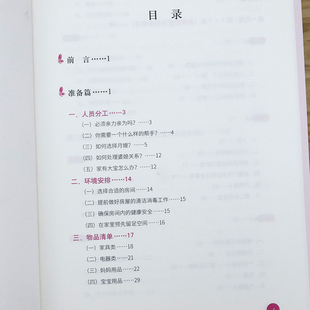 目 录
前 言……1
准备篇……1
一、人员分工……3
（一）必须亲力亲为吗？……3
（二）你需要一个什么样的帮手？……4
（三）如何选择月嫂？……5
（四）如何处理婆媳关系？……5
（五）家有大宝怎么办？……12
二、环境安排……14
（一）选择合适的房间……14
（二）提前做好房屋的清洁消毒工作……15
（三）确保房间内的健康安全……15
（四）在家里预先留足空间……16
三、物品清单……17
（一）家具类……18
（二）电器类……21
（三）妈妈用品……22
（四）宝宝用品……29